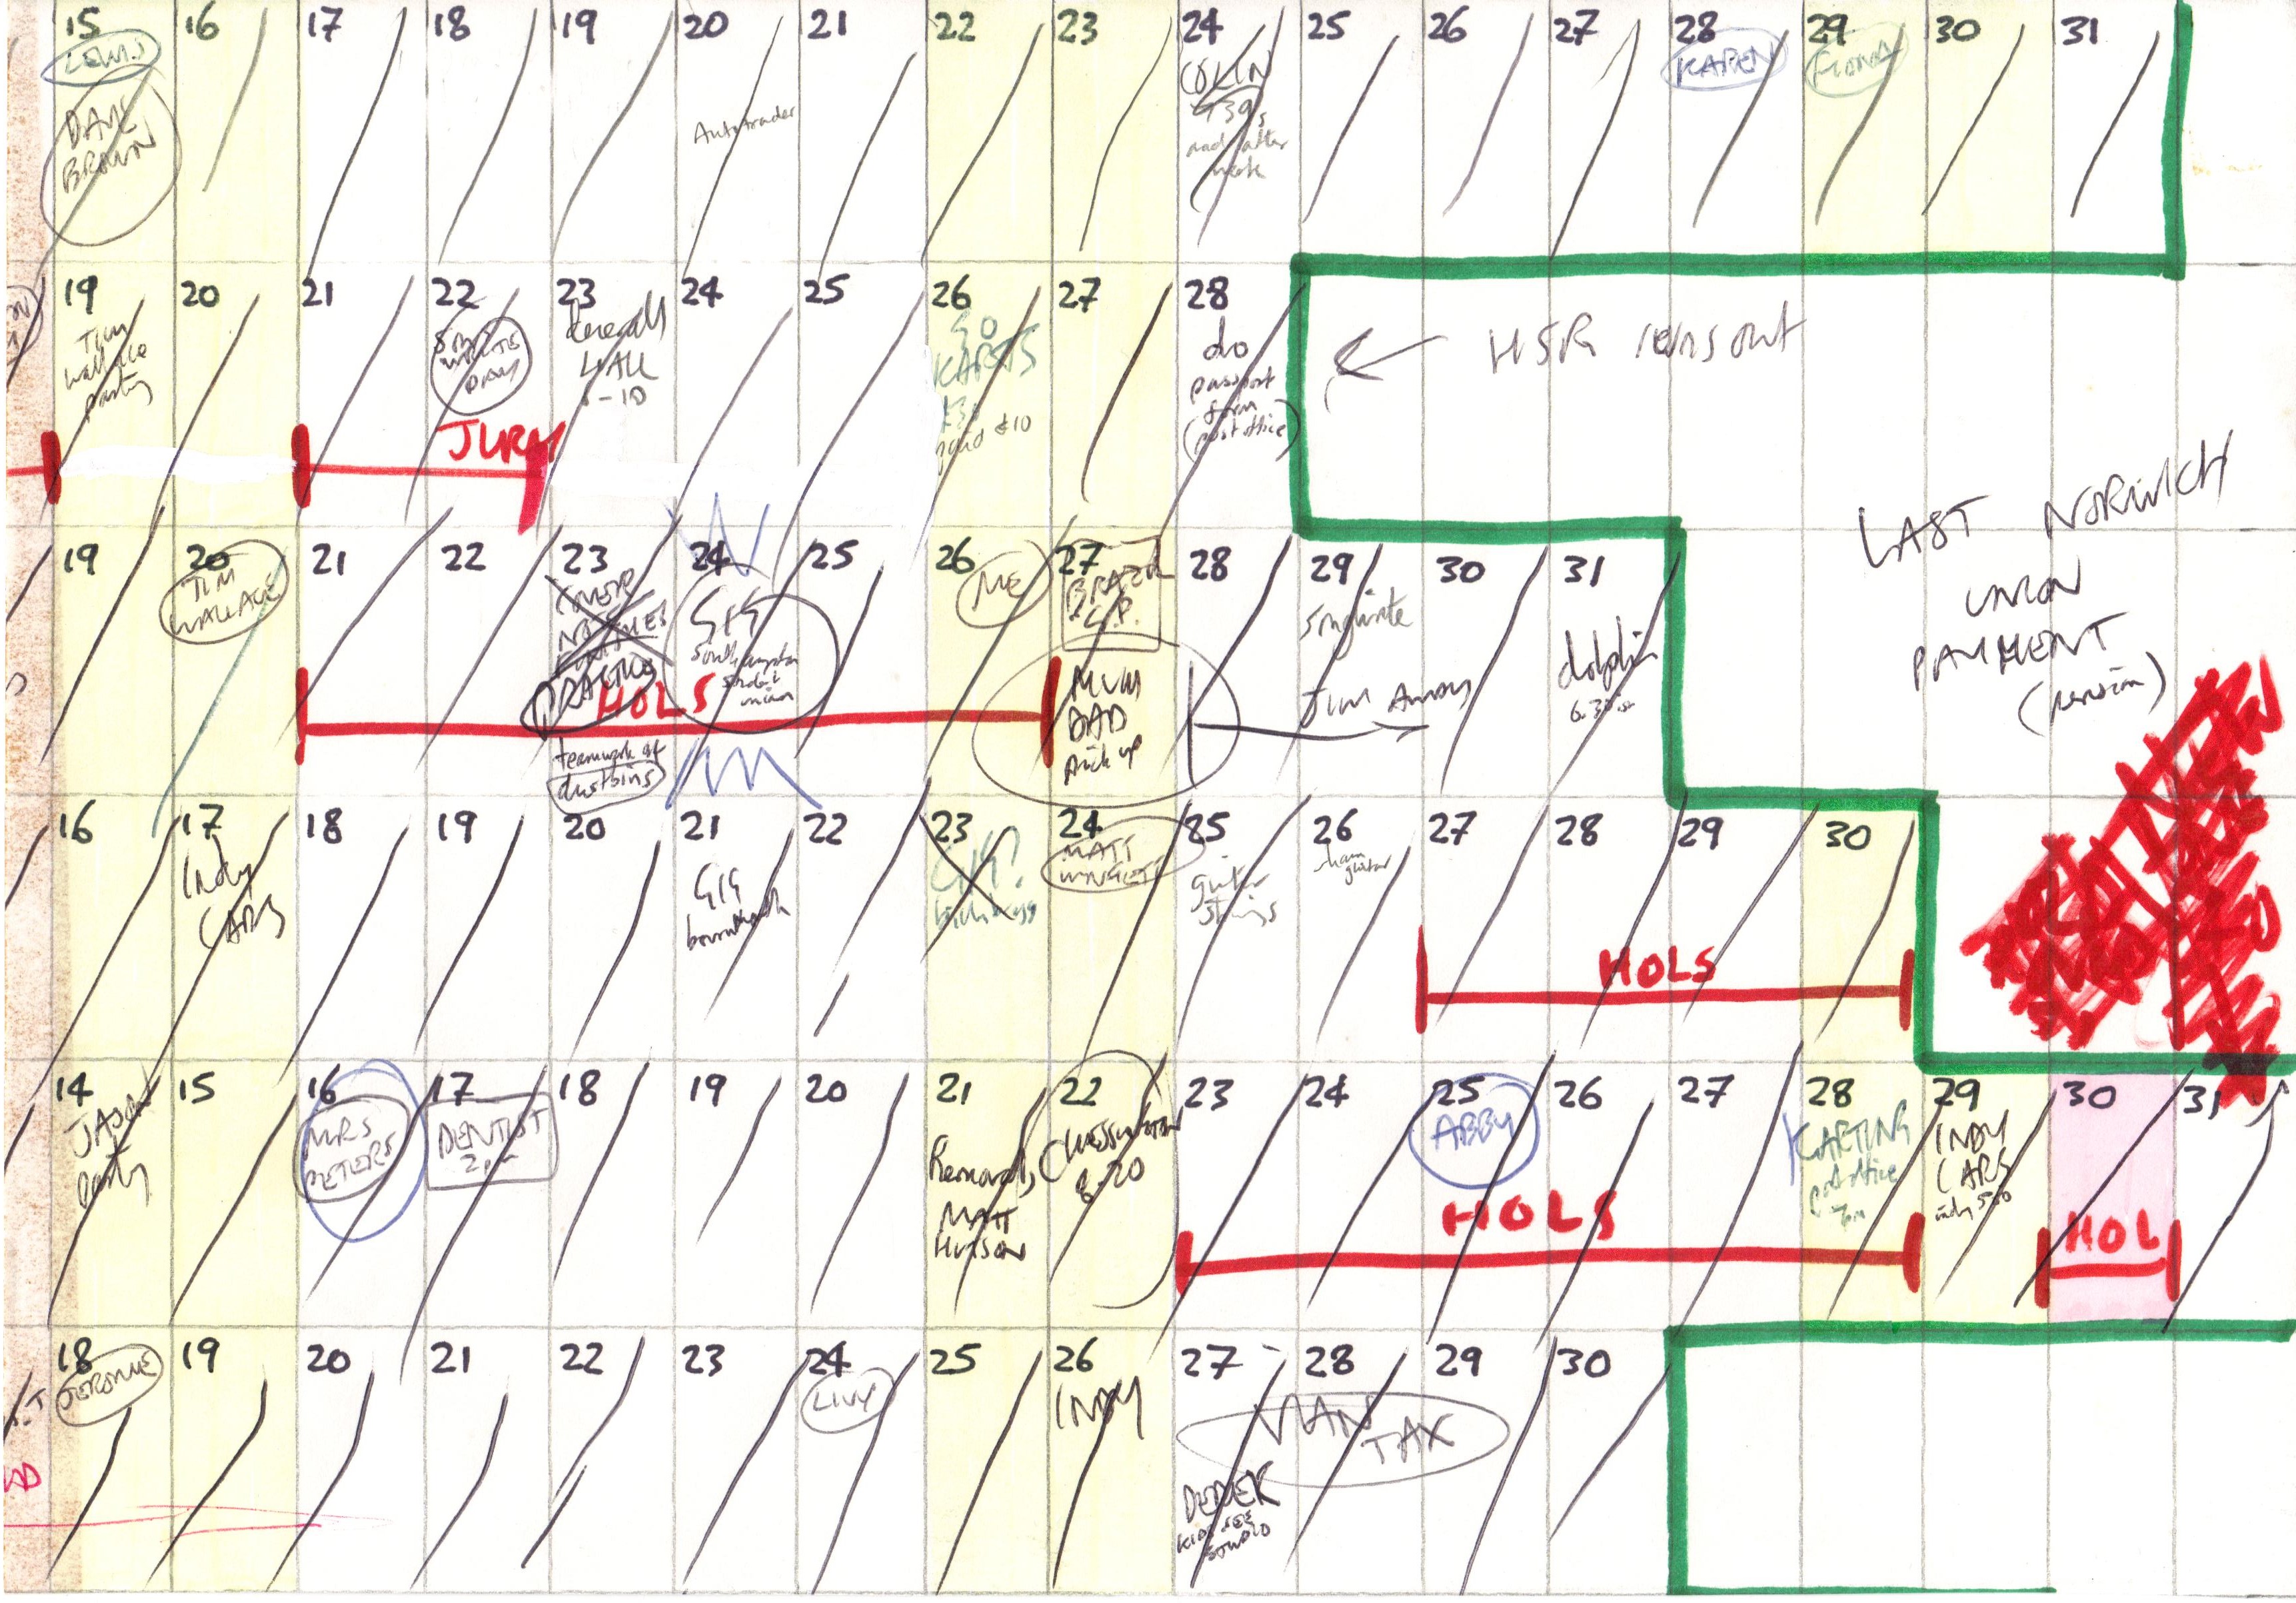 15 16 17 18 19 20 21 22 23 24 25 26 27 28 29 30 31
LEWIS
DAVE
BROWN
Autotrader
COLIN
and after
work
KAREN
FIONA
19 20 21 22 23 24 25 26 27 28
Tim
Wallace
party
JURY
HALL
GO
KARTS
paid £10
do
passport
form
(post office)
HSR runs out
LAST NORWICH
UNION
PAYMENT
(pension)
19 20 21 22 23 24 25 26 27 28 29 30 31
TIM
WALLACE
HOLS
teamwork at
dustbins
GIG
Southampton
student
union
ME
BRAZIL
G.P.
MUM
DAD
pick up
songwrite
dolphin
6.30
16 17 18 19 20 21 22 23 24 25 26 27 28 29 30
Indy
CARS
GIG
GIG?
MATT
guitar
strings
guitar
HOLS
14 15 16 17 18 19 20 21 22 23 24 25 26 27 28 29 30 31
JASON
party
MRS
PETERS
DENTIST
2pm
MATT
8-20
ABBY
HOLS
KARTING
post office
7pm
INDY
CARS
indy 500
HOL
18 19 20 21 22 23 24 25 26 27 28 29 30
JEROME
LIVY
INDY
VAN
TAX
DEREK
KIDS SEE